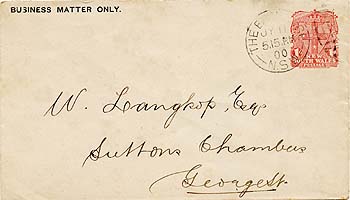 BUSINESS MATTER ONLY.
THE E
JY 11
5.15 AM
00
N.S.W
NEW
SOUTH WALES
POSTAGE
W. Langkop, Esq
Suttons Chambers
George St